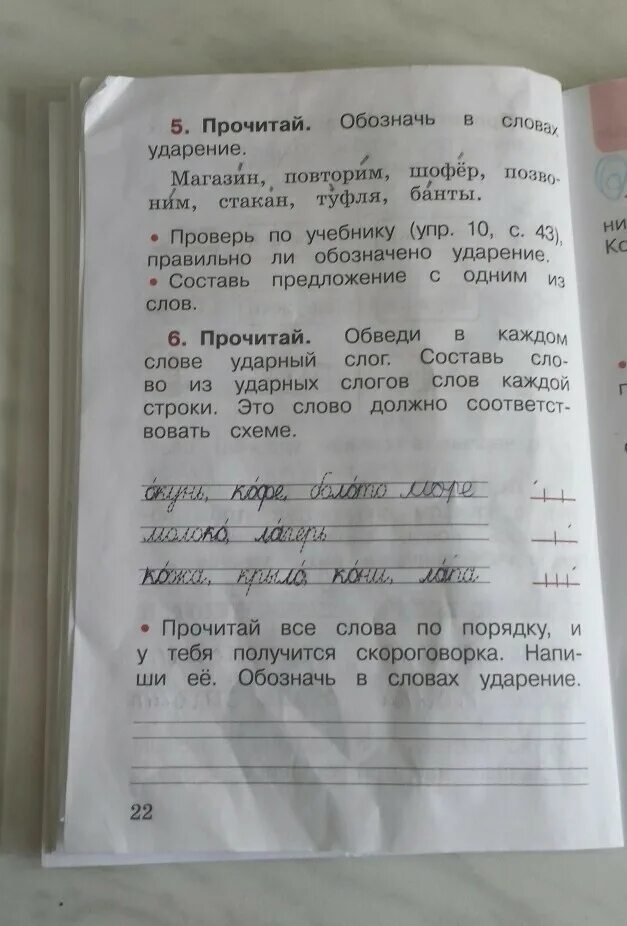 5. Прочитай. Обозначь в словах
ударение.
Магази́н, повтори́м, шофёр, позво-
ни́м, стака́н, ту́фля, ба́нты.
• Проверь по учебнику (упр. 10, с. 43),
правильно ли обозначено ударение.
• Составь предложение с одним из
слов.
6. Прочитай. Обведи в каждом
слове ударный слог. Составь сло-
во из ударных слогов слов каждой
строки. Это слово должно соответст-
вовать схеме.
о́кунь, ко́фе, боло́то мо́ре
молоко́, ла́герь
ко́жа, крыло́, ко́ни, ла́па
• Прочитай все слова по порядку, и
у тебя получится скороговорка. Напи-
ши её. Обозначь в словах ударение.
22
ни
Ко